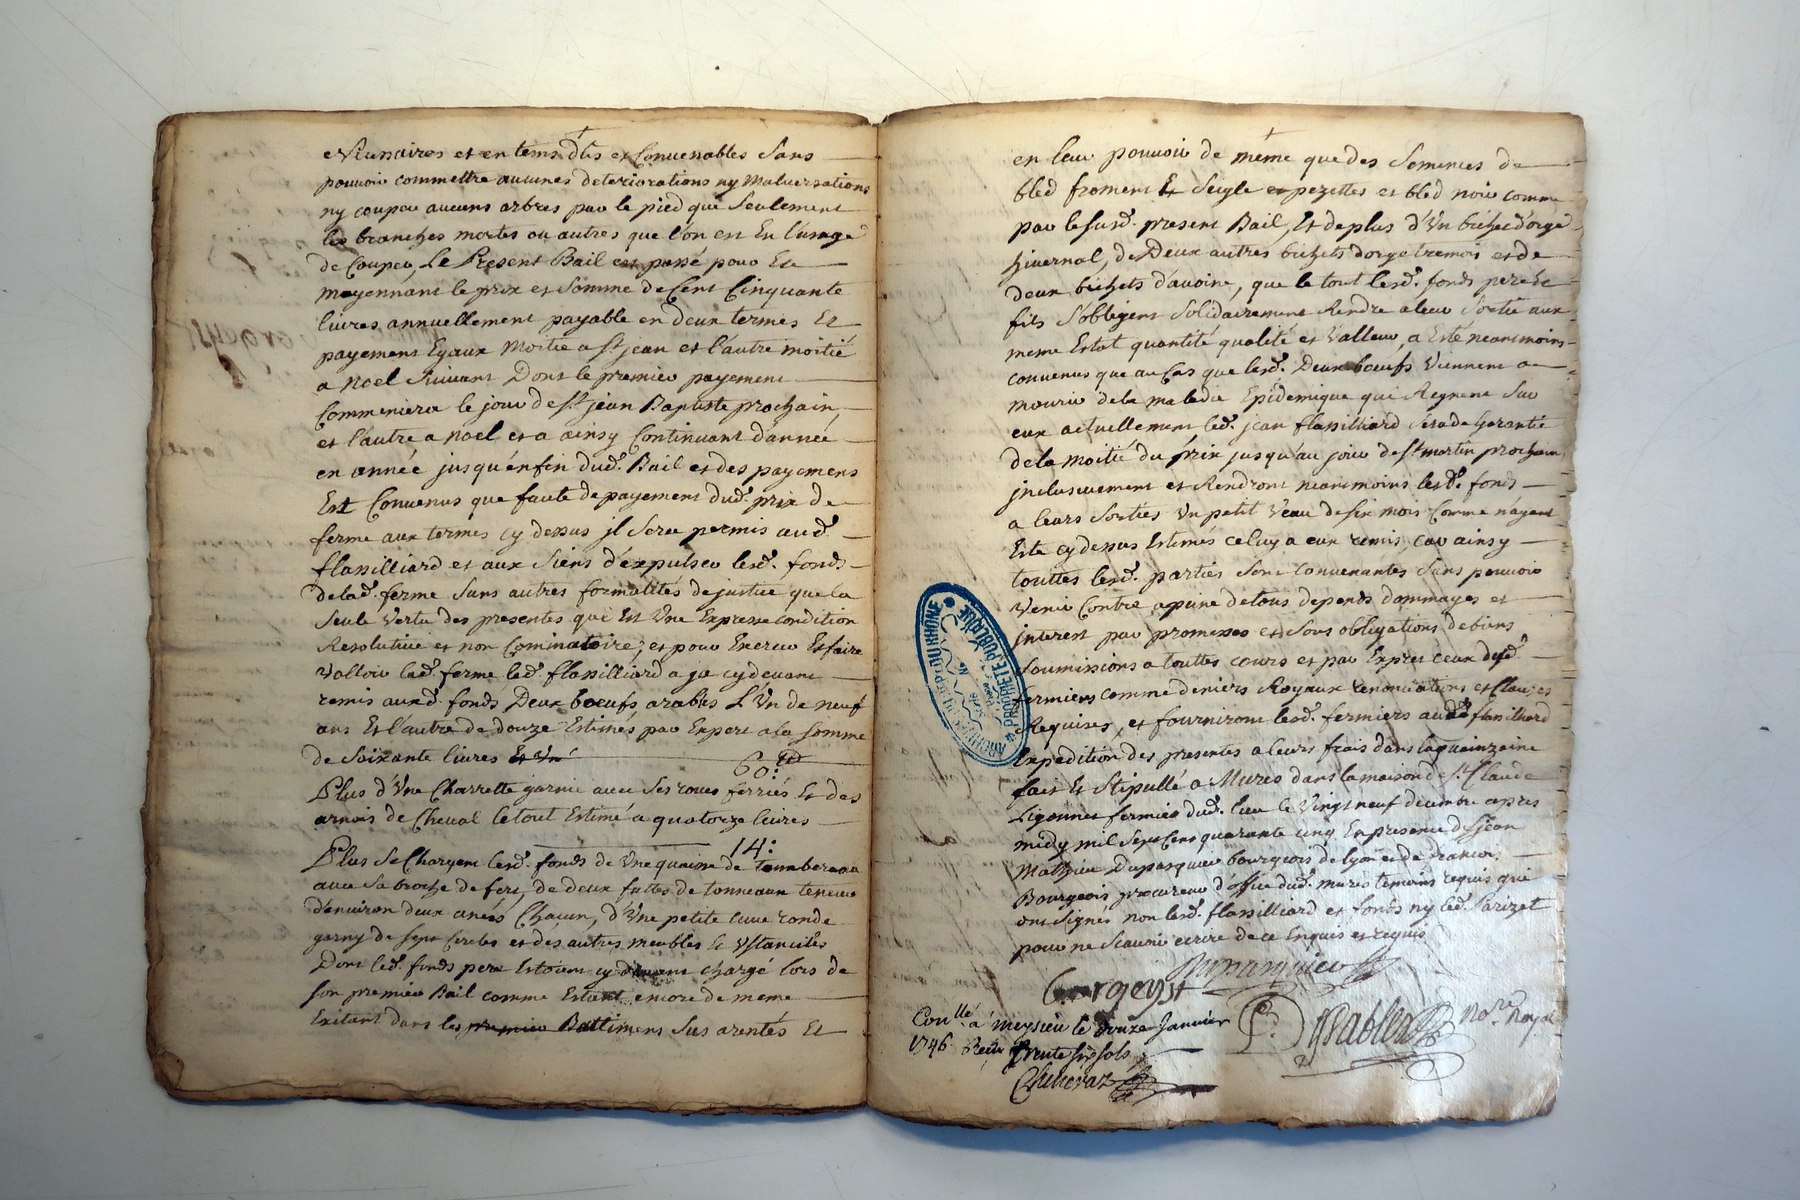 et en tems dûs et Convenables Sans
pouvoir commettre aucunes deteriorations ny malversations
ny couper aucuns arbres par le pied que Seulement
les branches mortes ou autres que l'on est En l'usage
de Couper, Le Present Bail est passé pour Et
moyennant le prix et Somme de Cent Cinquante
livres annuellement payable en deux termes Et
payement Egaux moitié a St jean et l'autre moitié
a noel Suivant Dont le premier payement
Commencera le jour de St jean Baptiste prochain
et l'autre a noel et a ainsy Continuant d'année
en année jusqu'en fin dud. Bail et des payemens
Est Convenus que faute de payement dud. prix de
ferme aux termes cy dessus jl Sera permis aud.
flassilliard et aux Siens d'expulser lesd. fonds
de lad. ferme Sans autres formalités de justice que la
Seule Vertu des presentes qui Est Une Expresse condition
Resolutive et non Cominatoire, et pour Exercer Et faire
Valloir lad. ferme led. flassilliard a ja cydevant
remis auxd. fonds Deux bœufs arables L'Un de neuf
ans Et l'autre de douze Estimés par Expert a la Somme
de Soixante livres Et Un 60:
Plus d'Une Charrette garnie avec Ses roues ferrés Et des
arnois de Cheval le tout Estimé a quatorze livres
14:
Plus Se Chargent lesd. fonds de Une de tombereau
avec Sa broche de fert, de deux futtes de tonneaux teneur
d'environ deux anées Chacun, d'Une petite cuve ronde
garny de Sept Cercles et des autres meubles Et Ustanciles
Dont led. fonds pere Estoient cy devant chargé lors de
Son premier Bail comme Estant encore de meme
Exitant dans les premier Battimens Sus arentés Et
en leur pouvoir de même que des Semences de
bled froment Et Seigle et pezettes et bled noir comme
par le Susd. present Bail, Et de plus d'Un bichet d'orge
hivernal, de Deux autres bichets d'orge tremois et de
deux bichets d'avoine, que le tout lesd. fonds pere Et
fils S'obligent Solidairement Rendre a leur Sortie aux
meme Estat quantité qualité et Valleur, a Esté neantmoins
convenus que au Cas que lesd. Deux bœufs Viennent a
mourir de la maladie Epidemique qui Regnent Sur
eux actuellement led. jean flassilliard Sera de Garantie
de la moitié du prix jusqu'au jour de St martin prochain
jnclusivement et Rendront neantmoins lesd. fonds
a leurs Sorties Un petit Veau de Six mois Comme n'ayant
Esté cy dessus Estimés celuy a eux remis, car ainsy
touttes lesd. parties Sont convenantes Sans pouvoir
Venir Contre a peine de tous depends dommages et
jnterest par promesses et Sous obligations de biens
Soumissions a touttes cours et par Expres ceux dud.
fermiers comme deniers Royaux renonciations et Clauses
Requises, et fourniront lesd. fermiers aud. flassilliard
Expedition des presentes a leurs frais dans la quainzaine
fait Et Stipullé a Mures dans la maison de Sr Claude
Ligonnet fermier dud. lieu le Vingt neuf decembre apres
midy mil Sept Cent quarante cinq En presence de Sr jean
Mathieu Duparquier bourgeois de lyon et de francois
Bourgeois procureur d'office dud. mures temoins requis qui
ont Signés non lesd. flassilliard et fonds ny led. Parizet
pour ne Scavoir ecrire de ce Enquis et requis
Duparquier
Conllé a meysieu le douze Janvier
1746 Recu trente Six Sols
Nore Royal
ARCHIVES DU DEP. DU RHONE
PROPRIÉTÉ PUBLIQUE